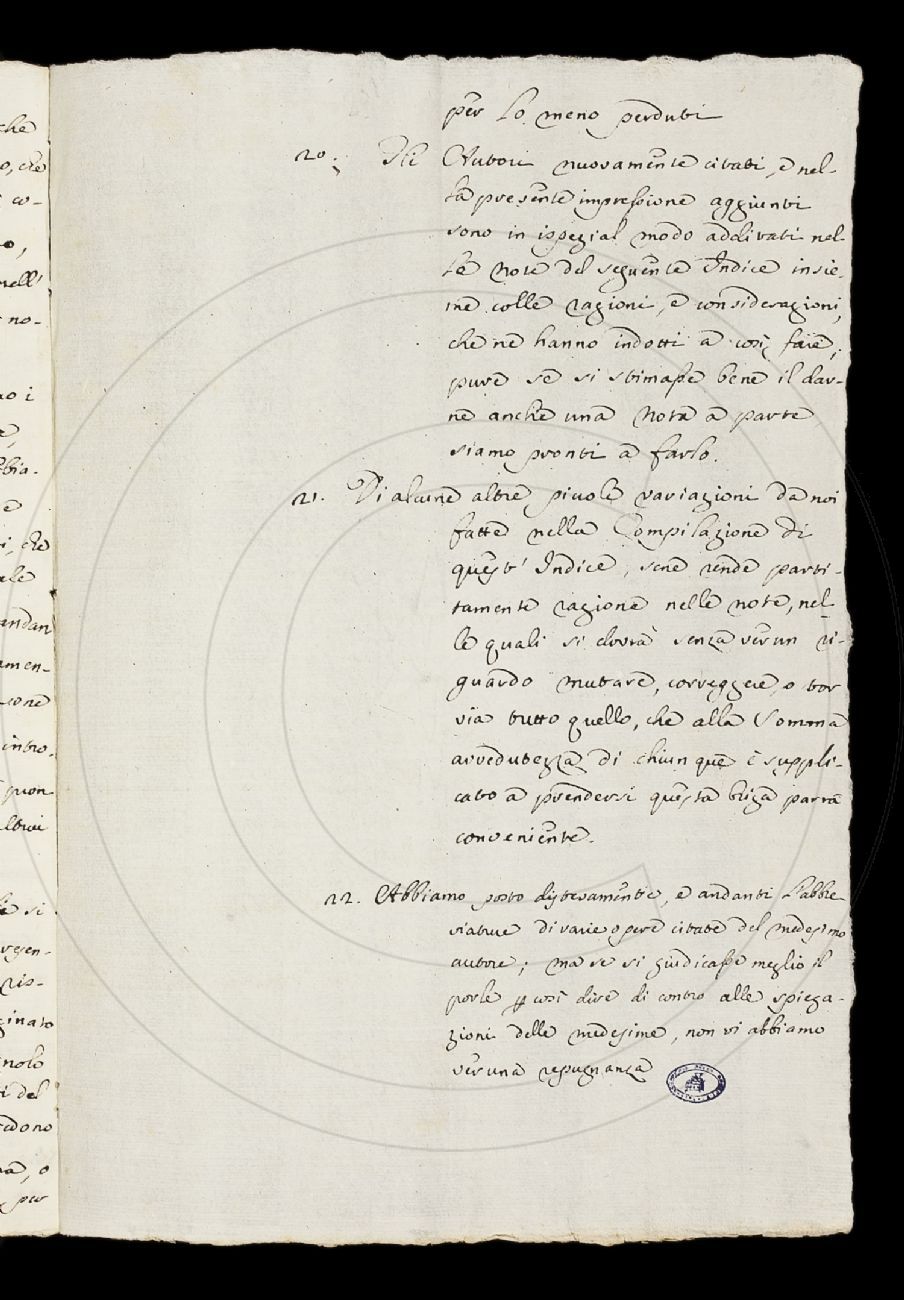 per lo meno perduti
20. Gli Autori nuovamente citati, e nel-
la presente impressione aggiunti
sono in ispezial modo additati nel-
le note del seguente Indice insie-
me colle ragioni, e considerazioni,
che ne hanno indotti a così fare;
pure se si stimasse bene il dar-
ne anche una nota a parte
siamo pronti a farlo.
21. Di alcune altre picole variazioni da noi
fatte nella Compilazione di
quest' Indice, sene rende parti-
tamente ragione nelle note, nel-
le quali si dovrà senza verun ri-
guardo mutare, correggere, o tor
via tutto quello, che alla somma
avvedutezza di chiunque è suppli-
cato a prendersi questa briga parrà
conveniente.
22. Abbiamo posto distesamente, e andanti l'abbre
viature di varie opere citate del medesimo
autore; ma se si giudicasse meglio il
porle p così dire di contro alle spiega-
zioni delle medesime, non vi abbiamo
veruna repugnanza
che
o, che
co-
o,
nell'
no-
o i
e,
bbia-
e
i, che
ale
andan
amen-
cone
intro-
puon
altrui
le si
resen-
ris-
ginato
nolo
ti del
edono
na, o
per